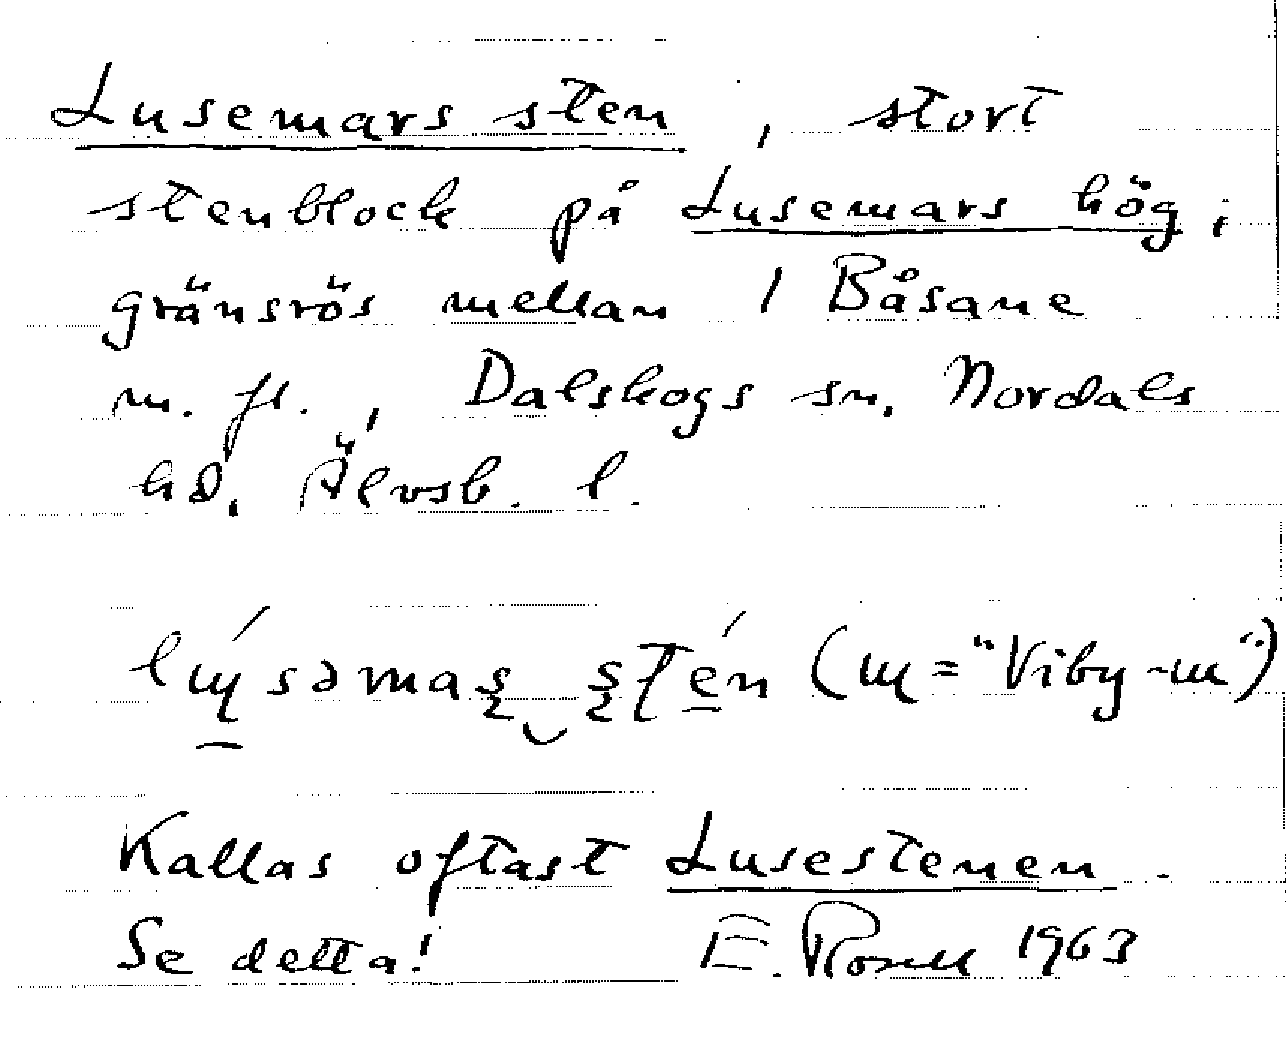 Lusemars sten, stort
stenblock på Lusemars hög,
gränsrös mellan 1 Båsane
m. fl., Dalskogs sn, Nordals
hd, Älvsb. l.
sten (ɰ = "Viby-ɰ")
Kallas oftast Lusestenen.
Se detta! E. Rosell 1963